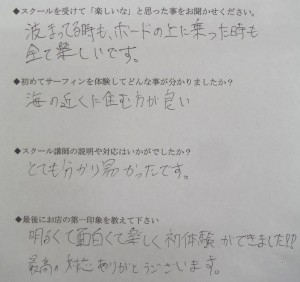 ◆スクールを受けて「楽しいな」と思った事をお聞かせください。
波まってる時も、ボードの上に乗った時も
全て楽しいです。
◆初めてサーフィンを体験してどんな事が分かりましたか？
海の近くに住む方が良い
◆スクール講師の説明や対応はいかがでしたか？
とても分かり易かったです。
◆最後にお店の第一印象を教えて下さい
明るくて面白くて楽しく初体験ができました!?
最高の対応ありがとうございます。